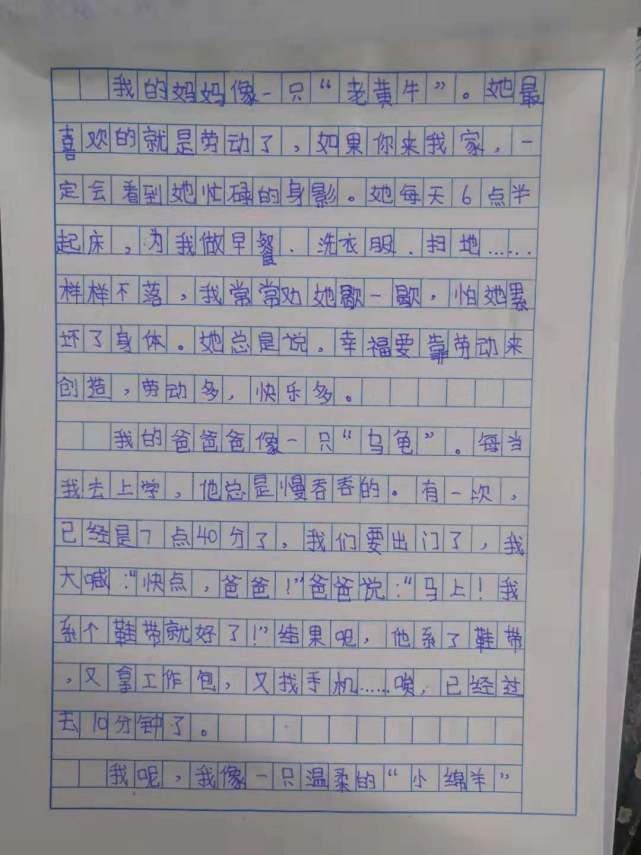 我的妈妈像一只“老黄牛”。她最
喜欢的就是劳动了，如果你来我家，一
定会看到她忙碌的身影。她每天6点半
起床，为我做早餐、洗衣服、扫地……
样样不落，我常常劝她歇一歇，怕她累
坏了身体。她总是说，幸福要靠劳动来
创造，劳动多，快乐多。
我的爸爸爸像一只“乌龟”。每当
我去上学，他总是慢吞吞的。有一次，
已经是7点40分了，我们要出门了，我
大喊：“快点，爸爸！”爸爸说：“马上！我
系个鞋带就好了！”结果呢，他系了鞋带
，又拿工作包，又找手机……唉，已经过
去10分钟了。
我呢，我像一只温柔的“小绵羊”